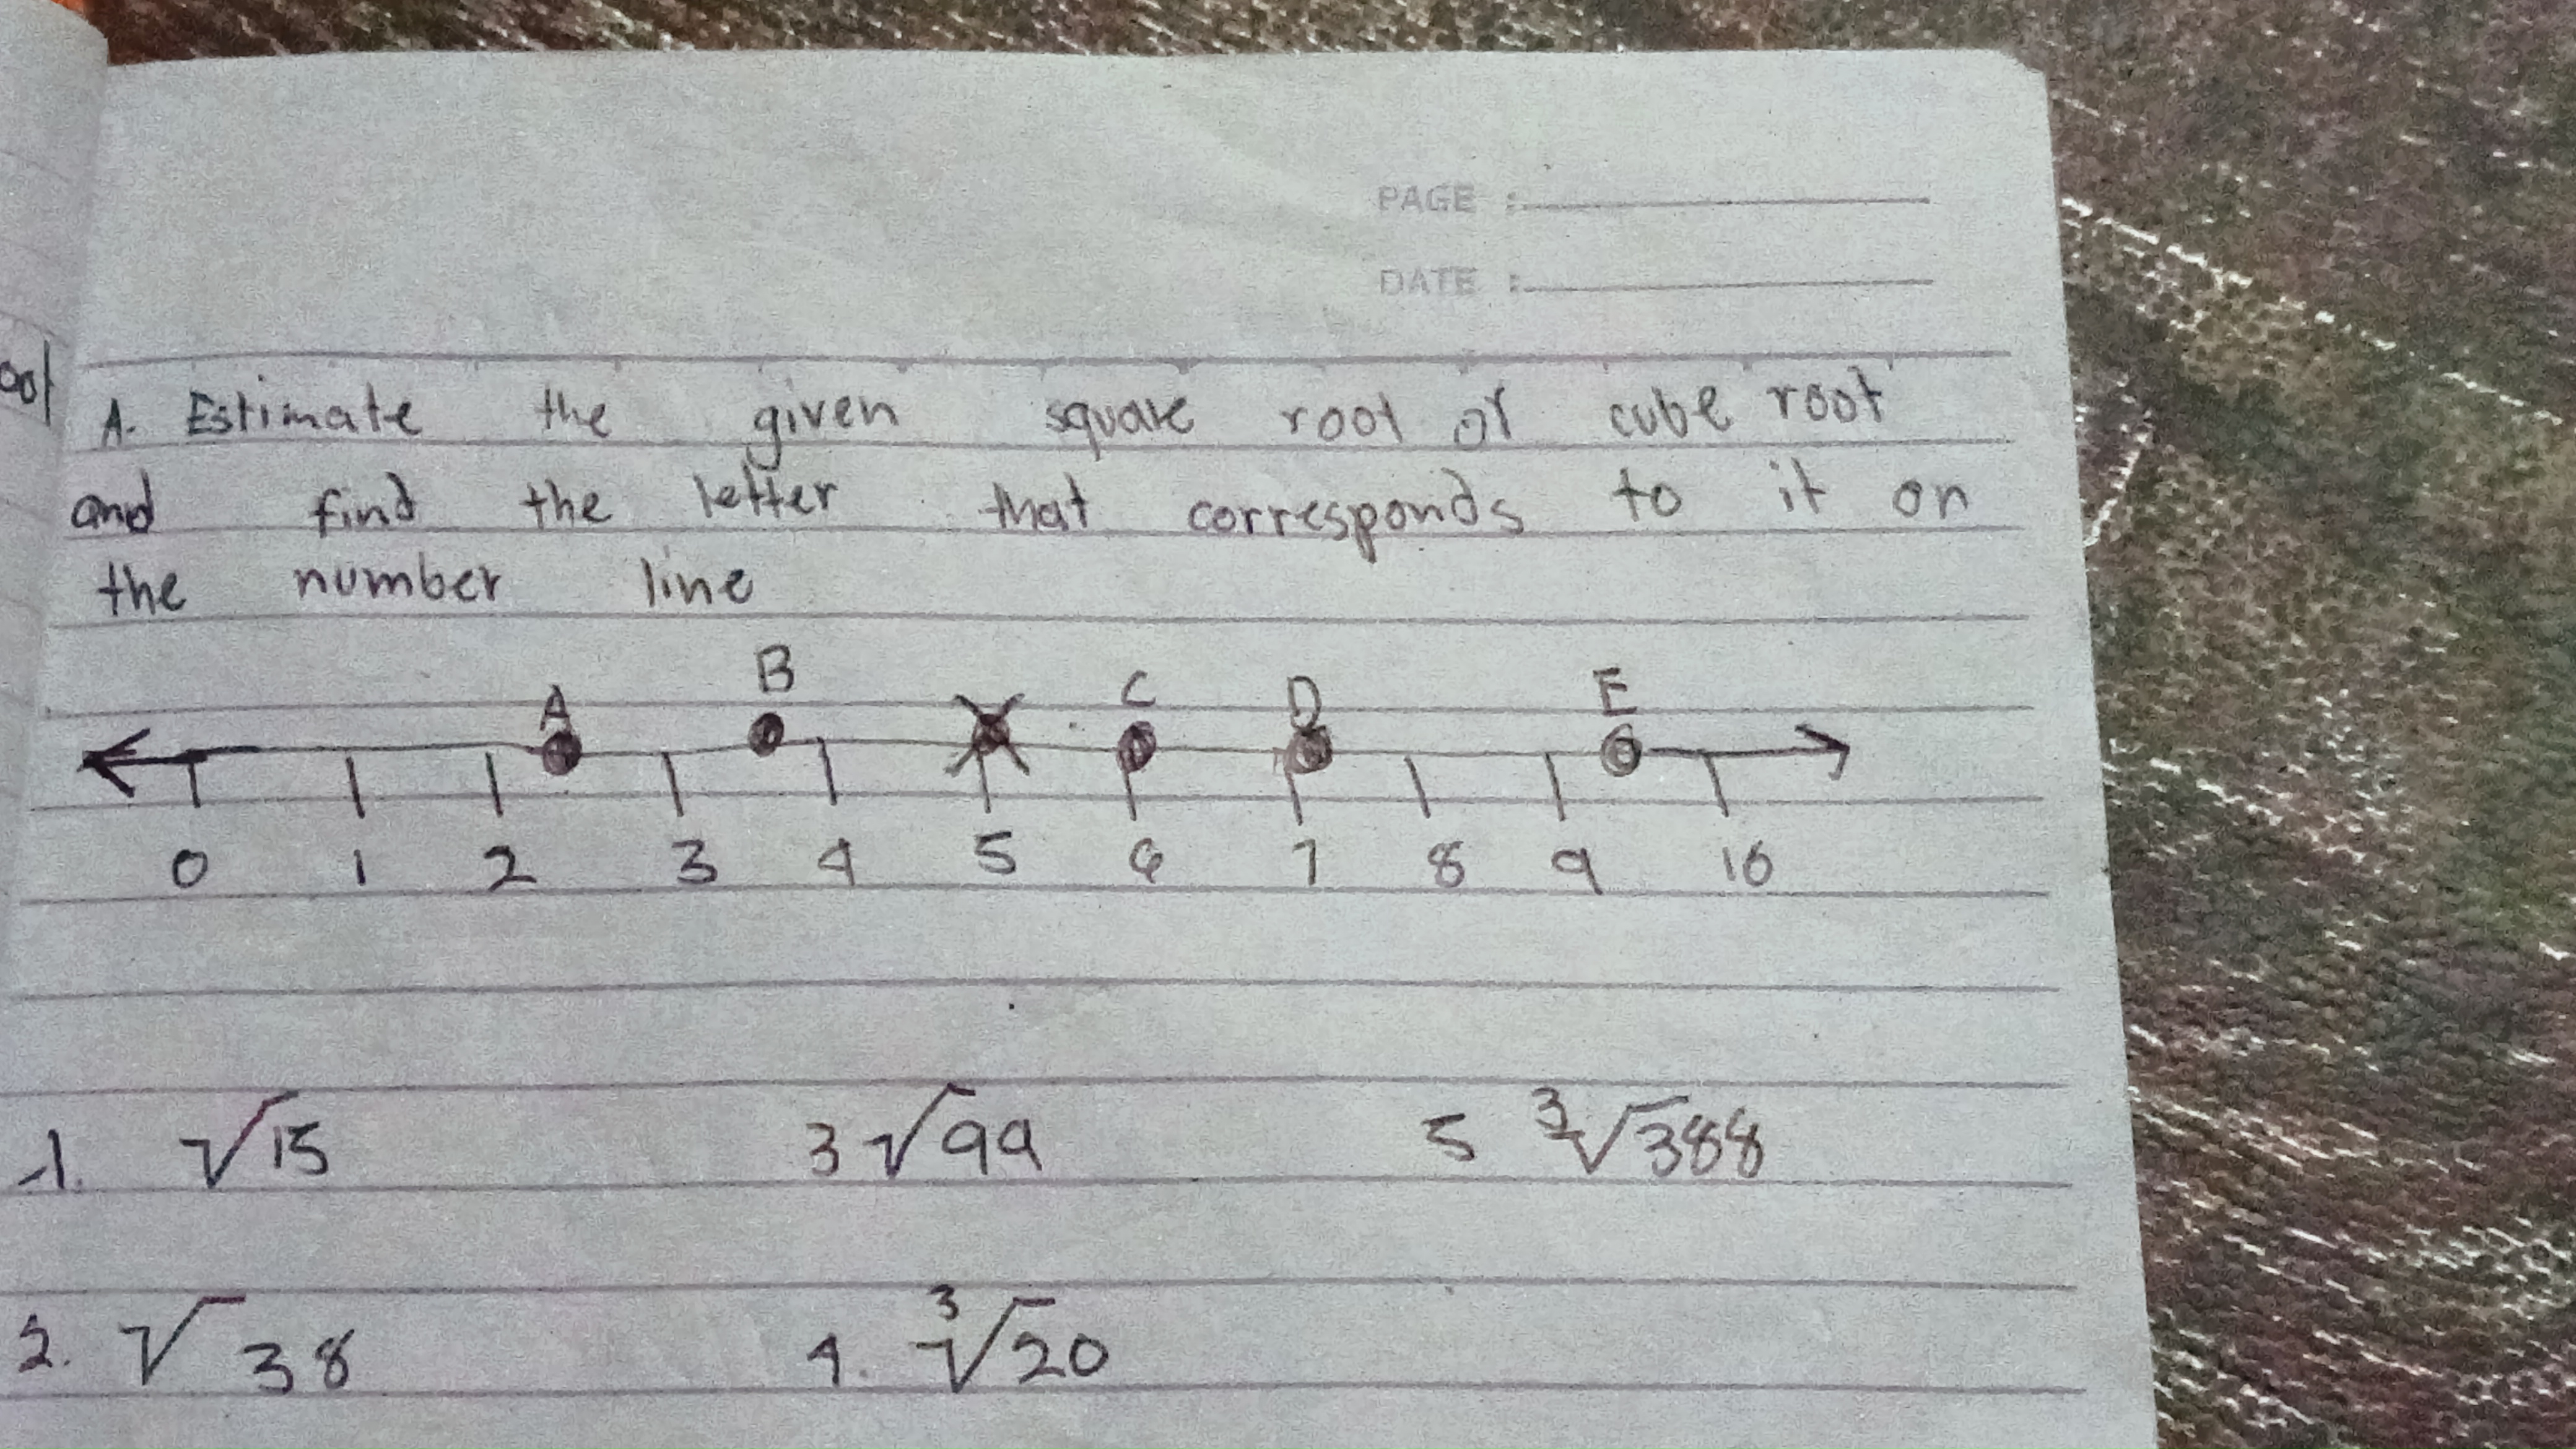 PAGE :
DATE :
A. Estimate the given square root or cube root
and find the letter that corresponds to it on
the number line
A B C D E
0 1 2 3 4 5 6 7 8 9 10
1. √15 3 √99 5 ∛388
2. √38 4. ∛20